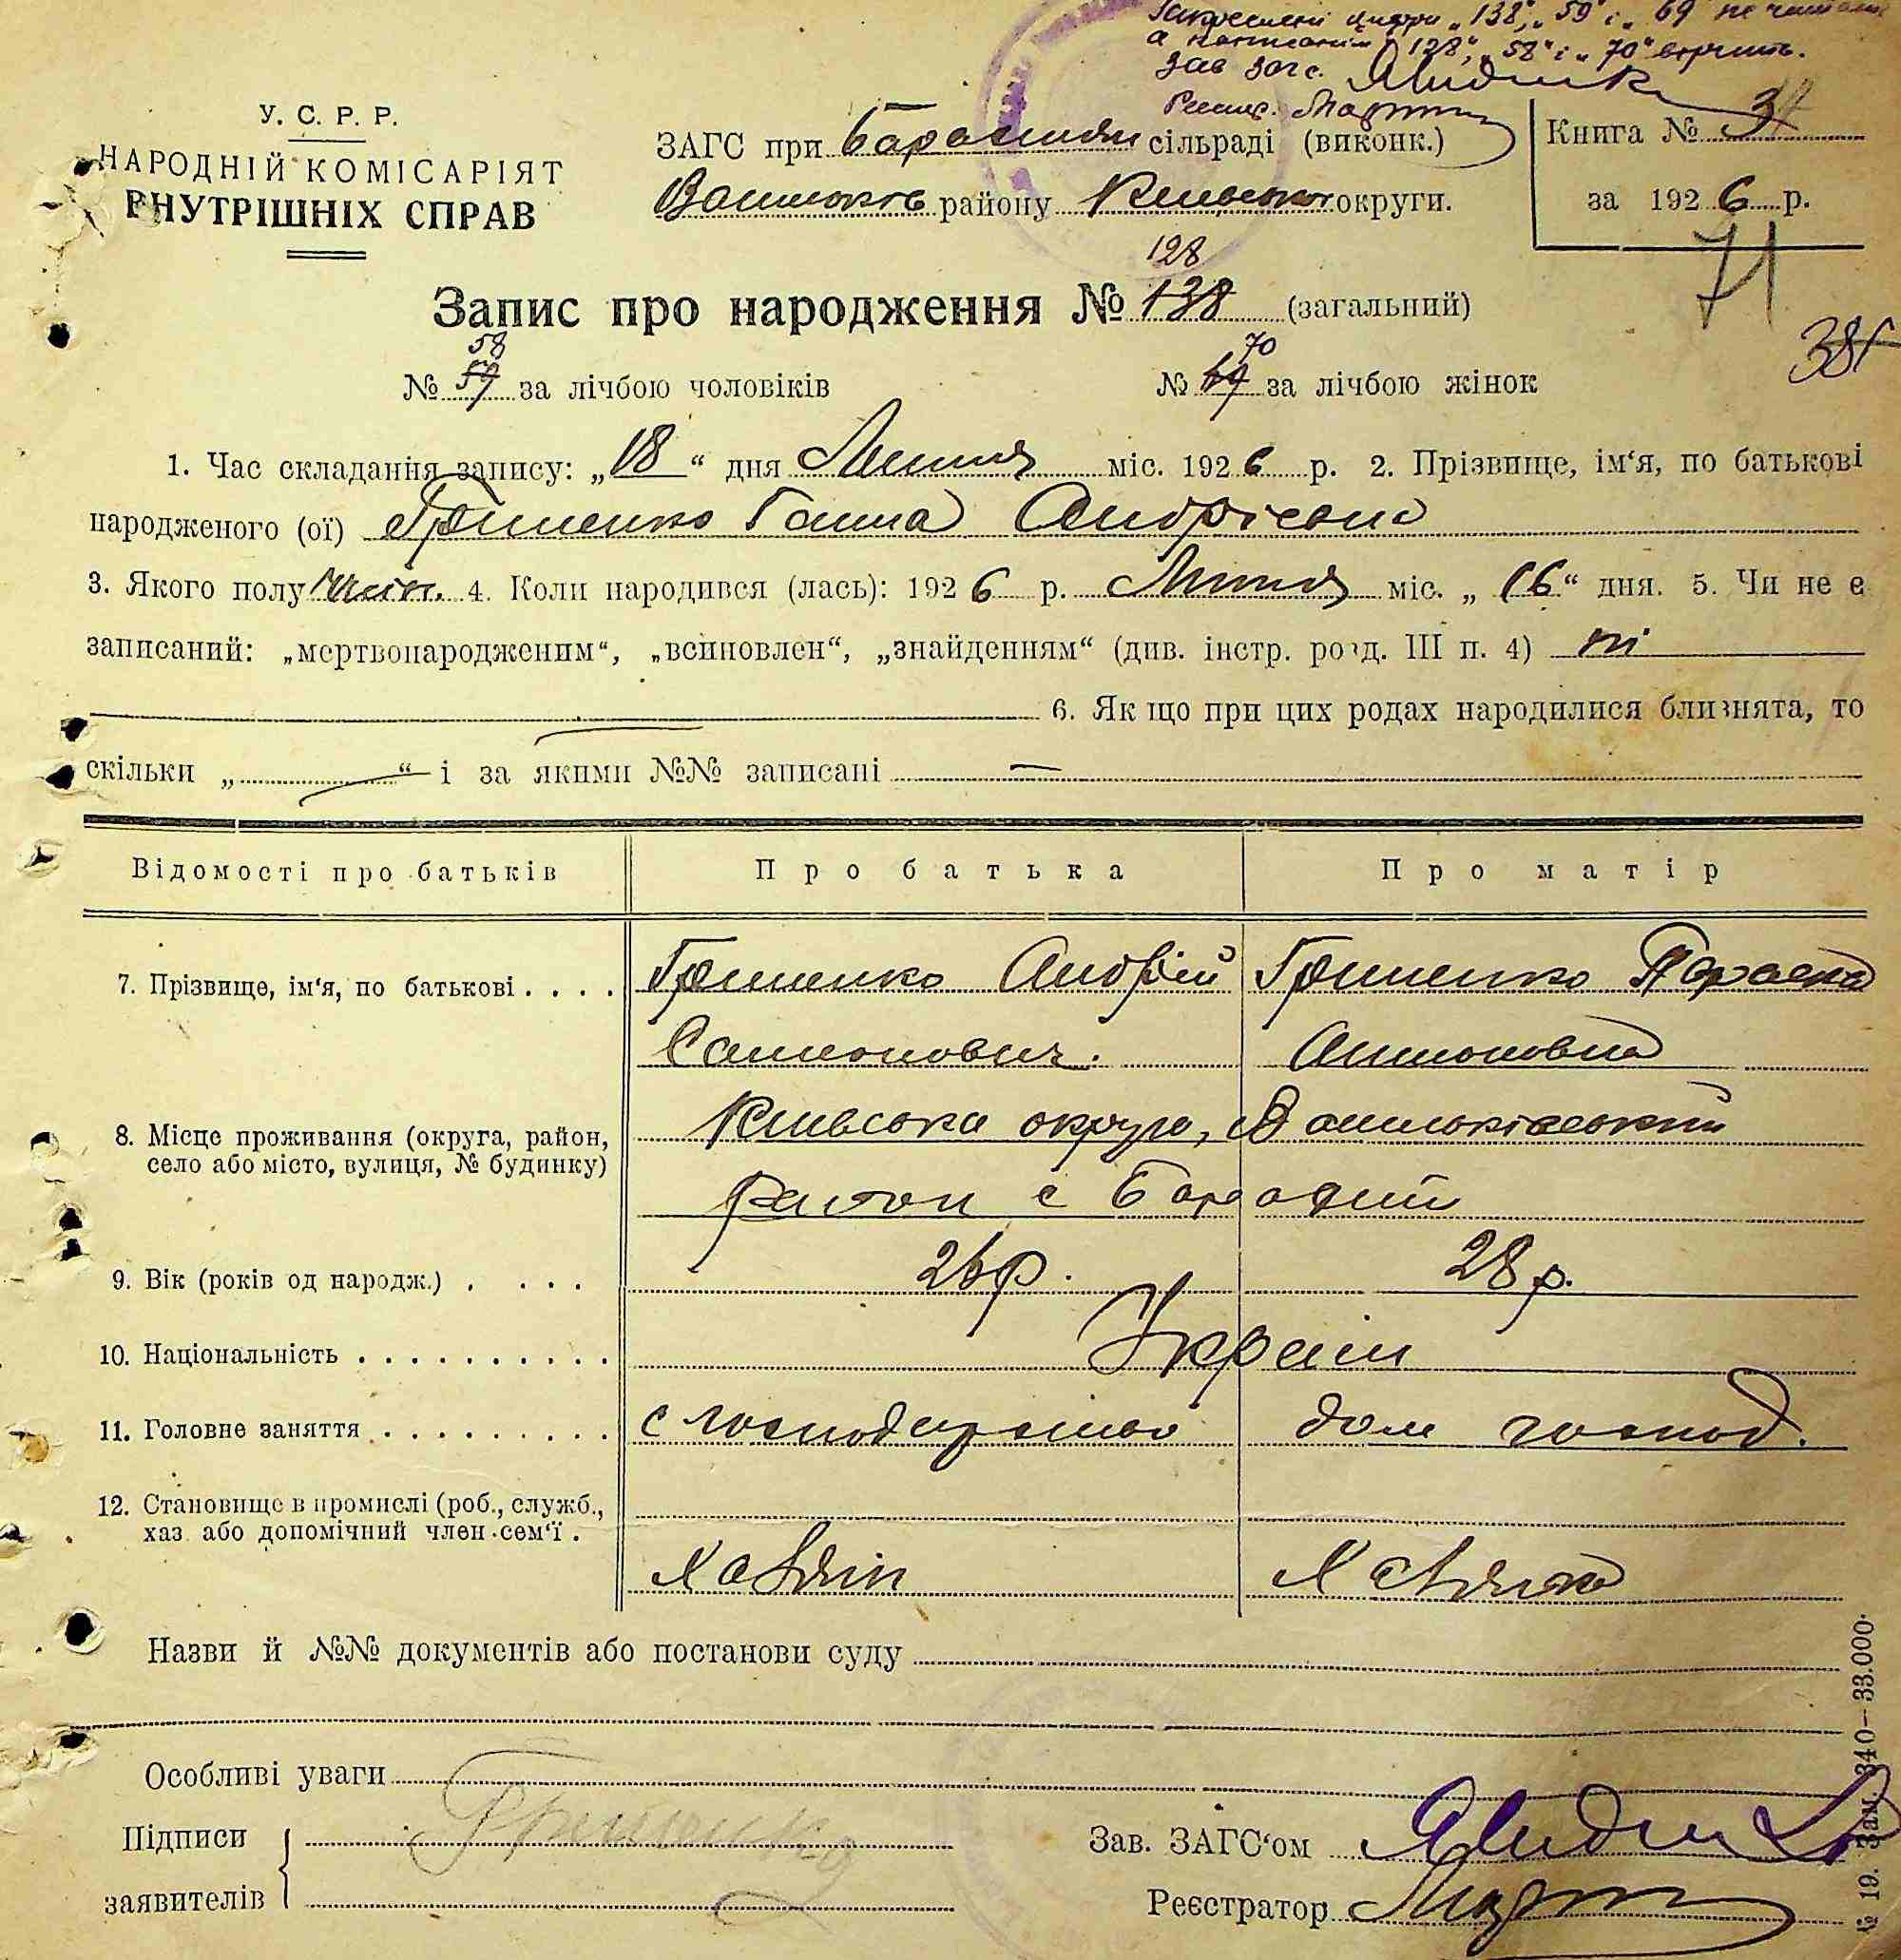 Закреслені цифри „138“, „59“ і „69 не читати
а написаним „128“, „58“ і „70“ вірить.
Зав Загс.
У. С. Р. Р.
НАРОДНІЙ КОМІСАРІЯТ
ВНУТРІШНІХ СПРАВ
ЗАГС при сільраді (виконк.)
району Київської округи.
Книга № 34
за 1926 р.
71
128
Запис про народження № 138 (загальний)
58 70
№ 59 за лічбою чоловіків № 69 за лічбою жінок
1. Час складання запису: „18“ дня Липня міс. 1926 р. 2. Прізвище, ім‘я, по батькові
народженого (ої) Гриненко Ганна Андріевна
3. Якого полу жін. 4. Коли народився (лась): 1926 р. Липня міс. „16“ дня. 5. Чи не є
записаний: „мертвонародженим“, „всиновлен“, „знайденням“ (див. інстр. розд. III п. 4) ні
6. Якщо при цих родах народилися близнята, то
скільки „ — “ і за якими №№ записані —
Відомості про батьків Про батька Про матір
7. Прізвище, ім‘я, по батькові . . . . Гриненко Андрій Гриненко Параска
Самонович. Антоновна
8. Місце проживання (округа, район, село або місто, вулиця, № будинку) Київська округа, Васильківський
район с
9. Вік (років од народж.) . . . . 26 р. 28 р.
10. Національність . . . . . . . . . . Україн
11. Головне заняття . . . . . . . . . с господарство дом господ.
12. Становище в промислі (роб., служб., хаз. або допомічний член сем‘ї .
Хазяін Хазяйка
Назви й №№ документів або постанови суду
Особливі уваги
Підписи заявителів
Зав. ЗАГС‘ом
Реєстратор
№ 19. Зам. 340—33.000.